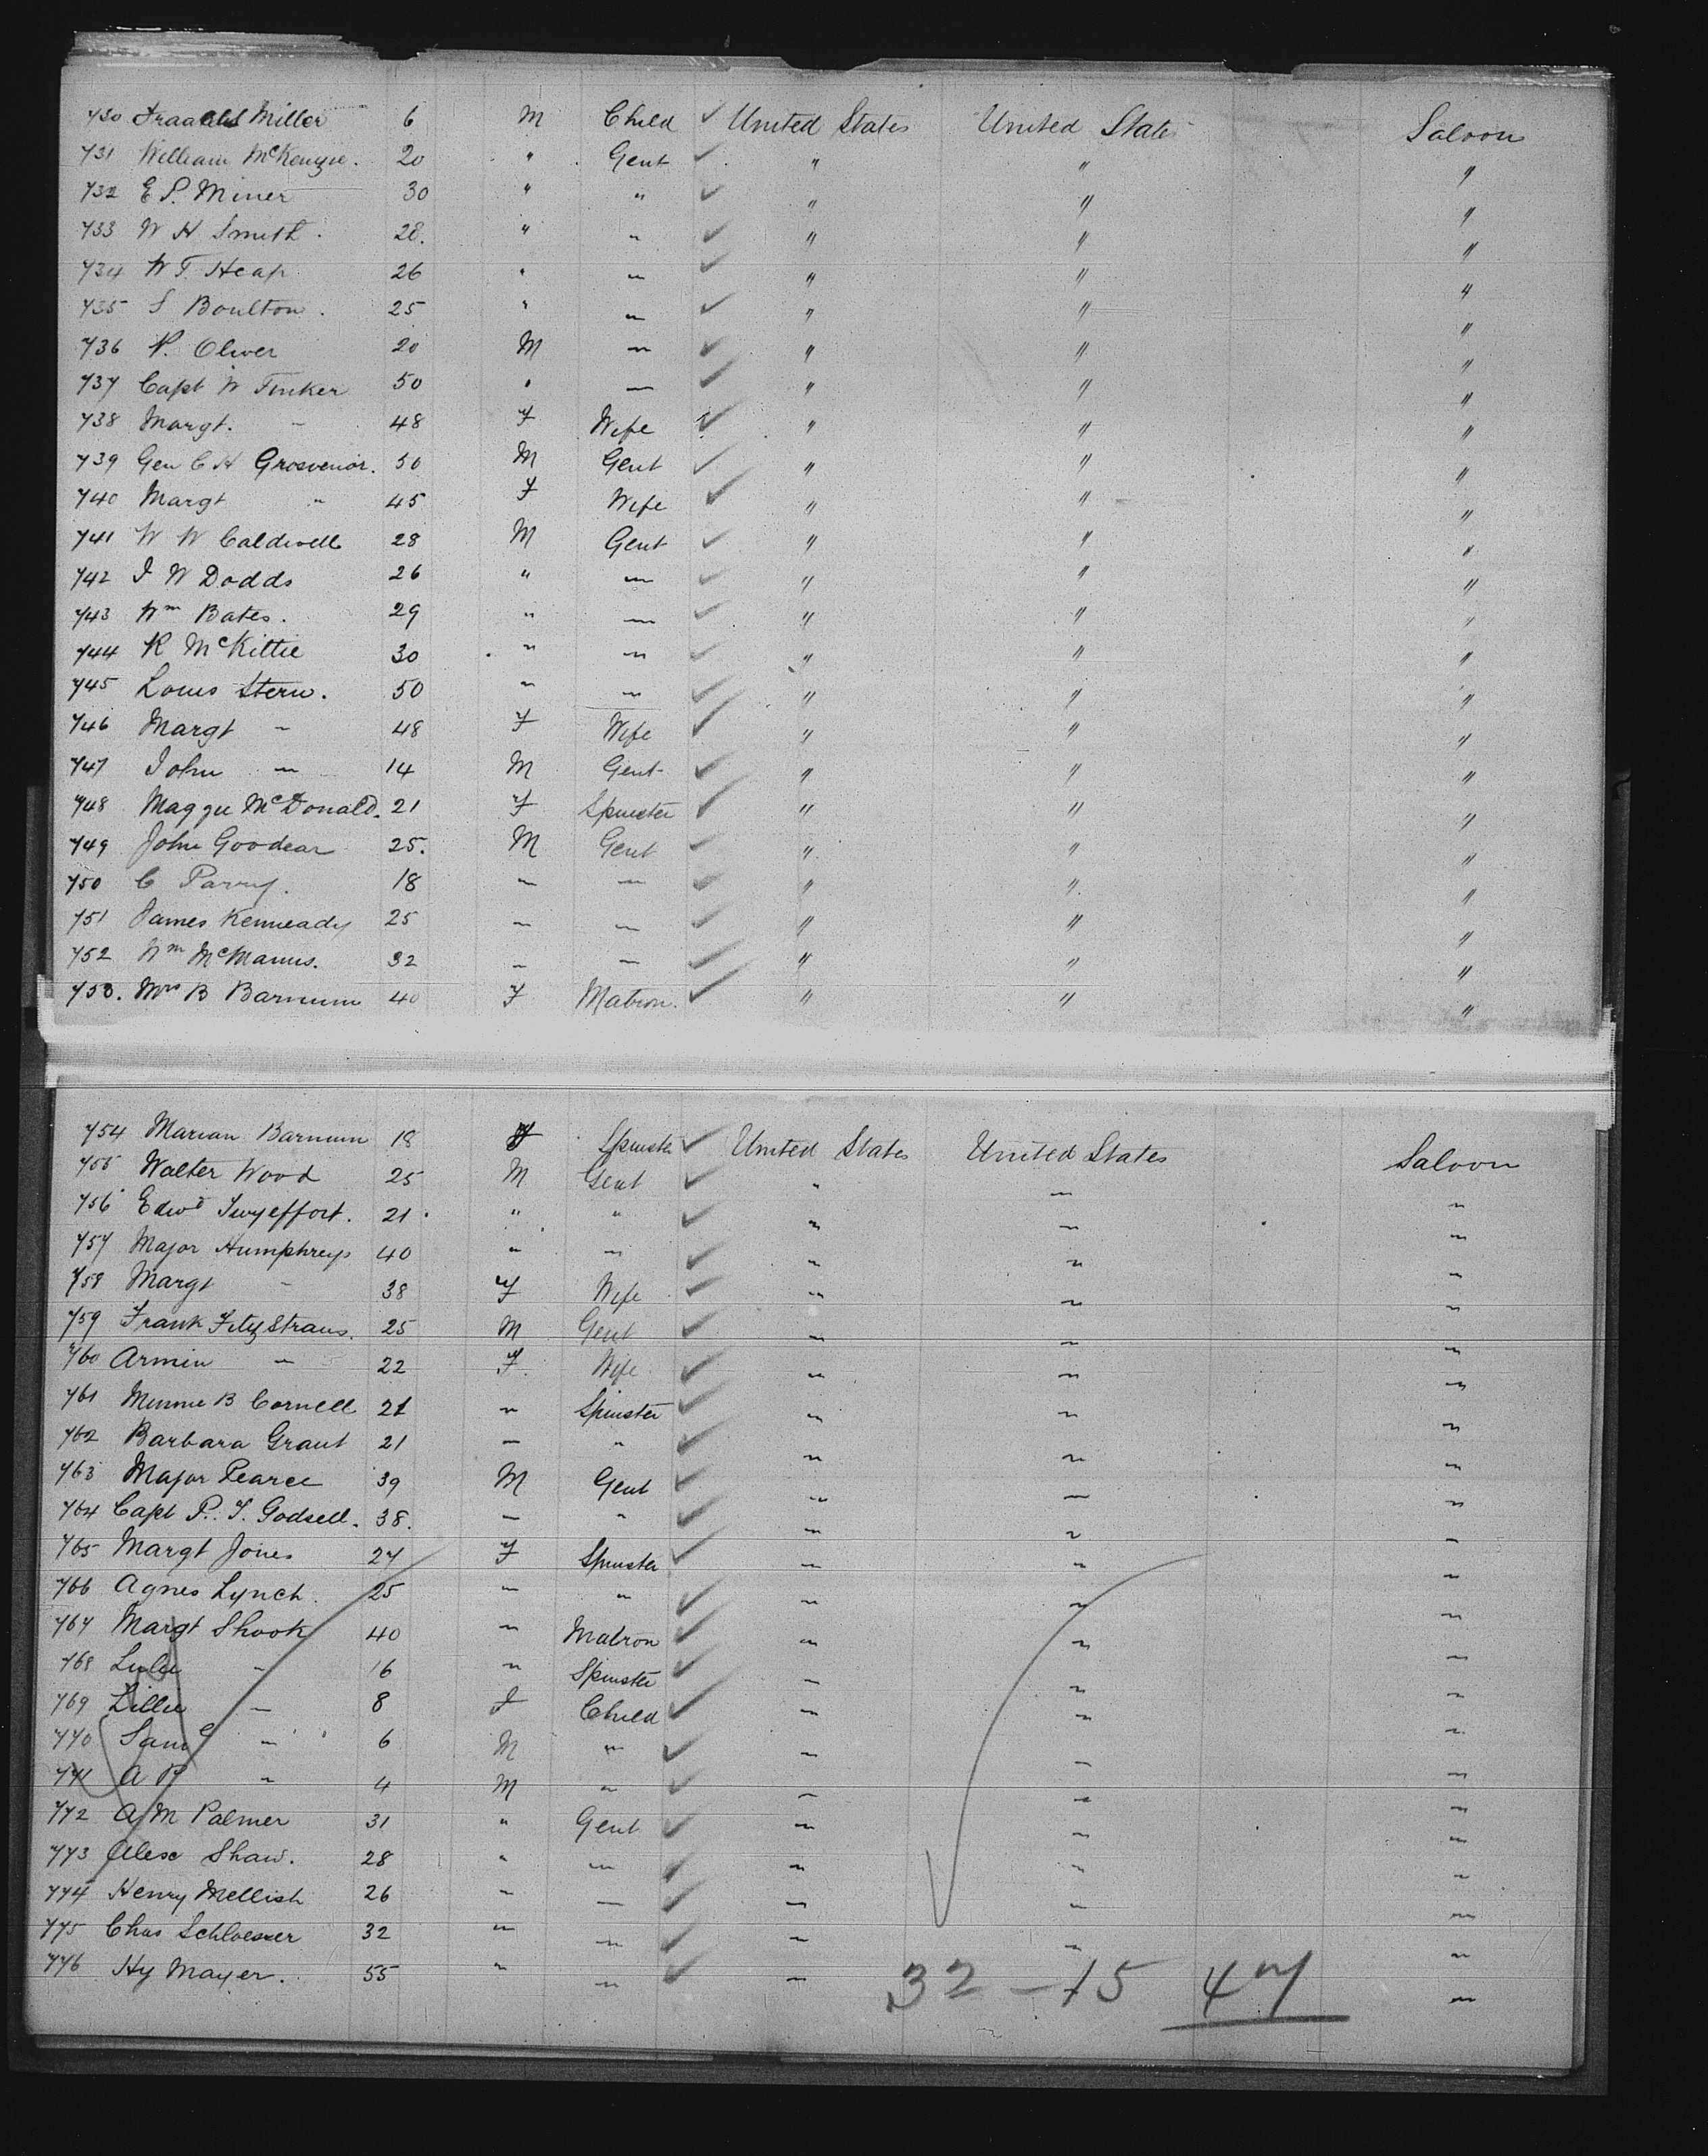 730 Miller 6 M Child ✓ United States United State Saloon
731 William McKenzie. 20 " Gent ✓ " " "
732 E S. Miner 30 " " ✓ " " "
733 W H Smith. 28. " " ✓ " " "
734 W T. Heap 26 " " ✓ " " "
735 S Boulton. 25 " " ✓ " " "
736 Oliver 20 M " ✓ " " "
737 Capt W Tinker 50 " " ✓ " " "
738 Margt. " 48 F Wife ✓ " " "
739 Gen C H Grosvenor. 50 M Gent ✓ " " "
740 Margt " 45 F Wife ✓ " " "
741 W W Caldwell 28 M Gent ✓ " " "
742 J W Dodds 26 " " ✓ " " "
743 Wm Bates. 29 " " ✓ " " "
744 R McKittie 30 " " ✓ " " "
745 Louis Stern. 50 " " ✓ " " "
746 Margt " 48 F Wife ✓ " " "
747 John " 14 M Gent ✓ " " "
748 Maggie McDonald. 21 F Spinster ✓ " " "
749 John Goodear 25. M Gent ✓ " " "
750 C Parry. 18 " " ✓ " " "
751 James Kenneady 25 " " ✓ " " "
752 Wm McManus. 32 " " ✓ " " "
753. Mrs B Barnum 40 F Matron. ✓ " " "
754 Marian Barnum 18 F Spinster ✓ United States United States Saloon
755 Walter Wood 25 M Gent ✓ " " "
756 Edwd Twyeffort. 21. " " ✓ " " "
757 Major Humphreys 40 " " ✓ " " "
758 Margt " 38 F Wife ✓ " " "
759 Frank Fitz Straus. 25 M Gent ✓ " " "
760 Armin " 22 F. Wife ✓ " " "
761 Minnie B Cornell 21 " Spinster ✓ " " "
762 Barbara Grant 21 " " ✓ " " "
763 Major Pearce 39 M Gent ✓ " " "
764 Capt P. T. Godsell. 38. " " ✓ " " "
765 Margt Jones 27 F Spinster ✓ " " "
766 Agnes Lynch. 25 " " ✓ " " "
767 Margt Shook 40 " Matron ✓ " " "
768 Lulu " 16 " Spinster ✓ " " "
769 Lillie " 8 F Child ✓ " " "
770 Saml " 6 M " ✓ " " "
771 A P " 4 M " ✓ " " "
772 A M Palmer 31 " Gent ✓ " " "
773 Alex Shaw. 28 " " ✓ " " "
774 Henry Mellish 26 " " ✓ " " "
775 Chas Schloesser 32 " " ✓ " " "
776 Hy Mayer. 55 " " ✓ " "
32 - 15 47